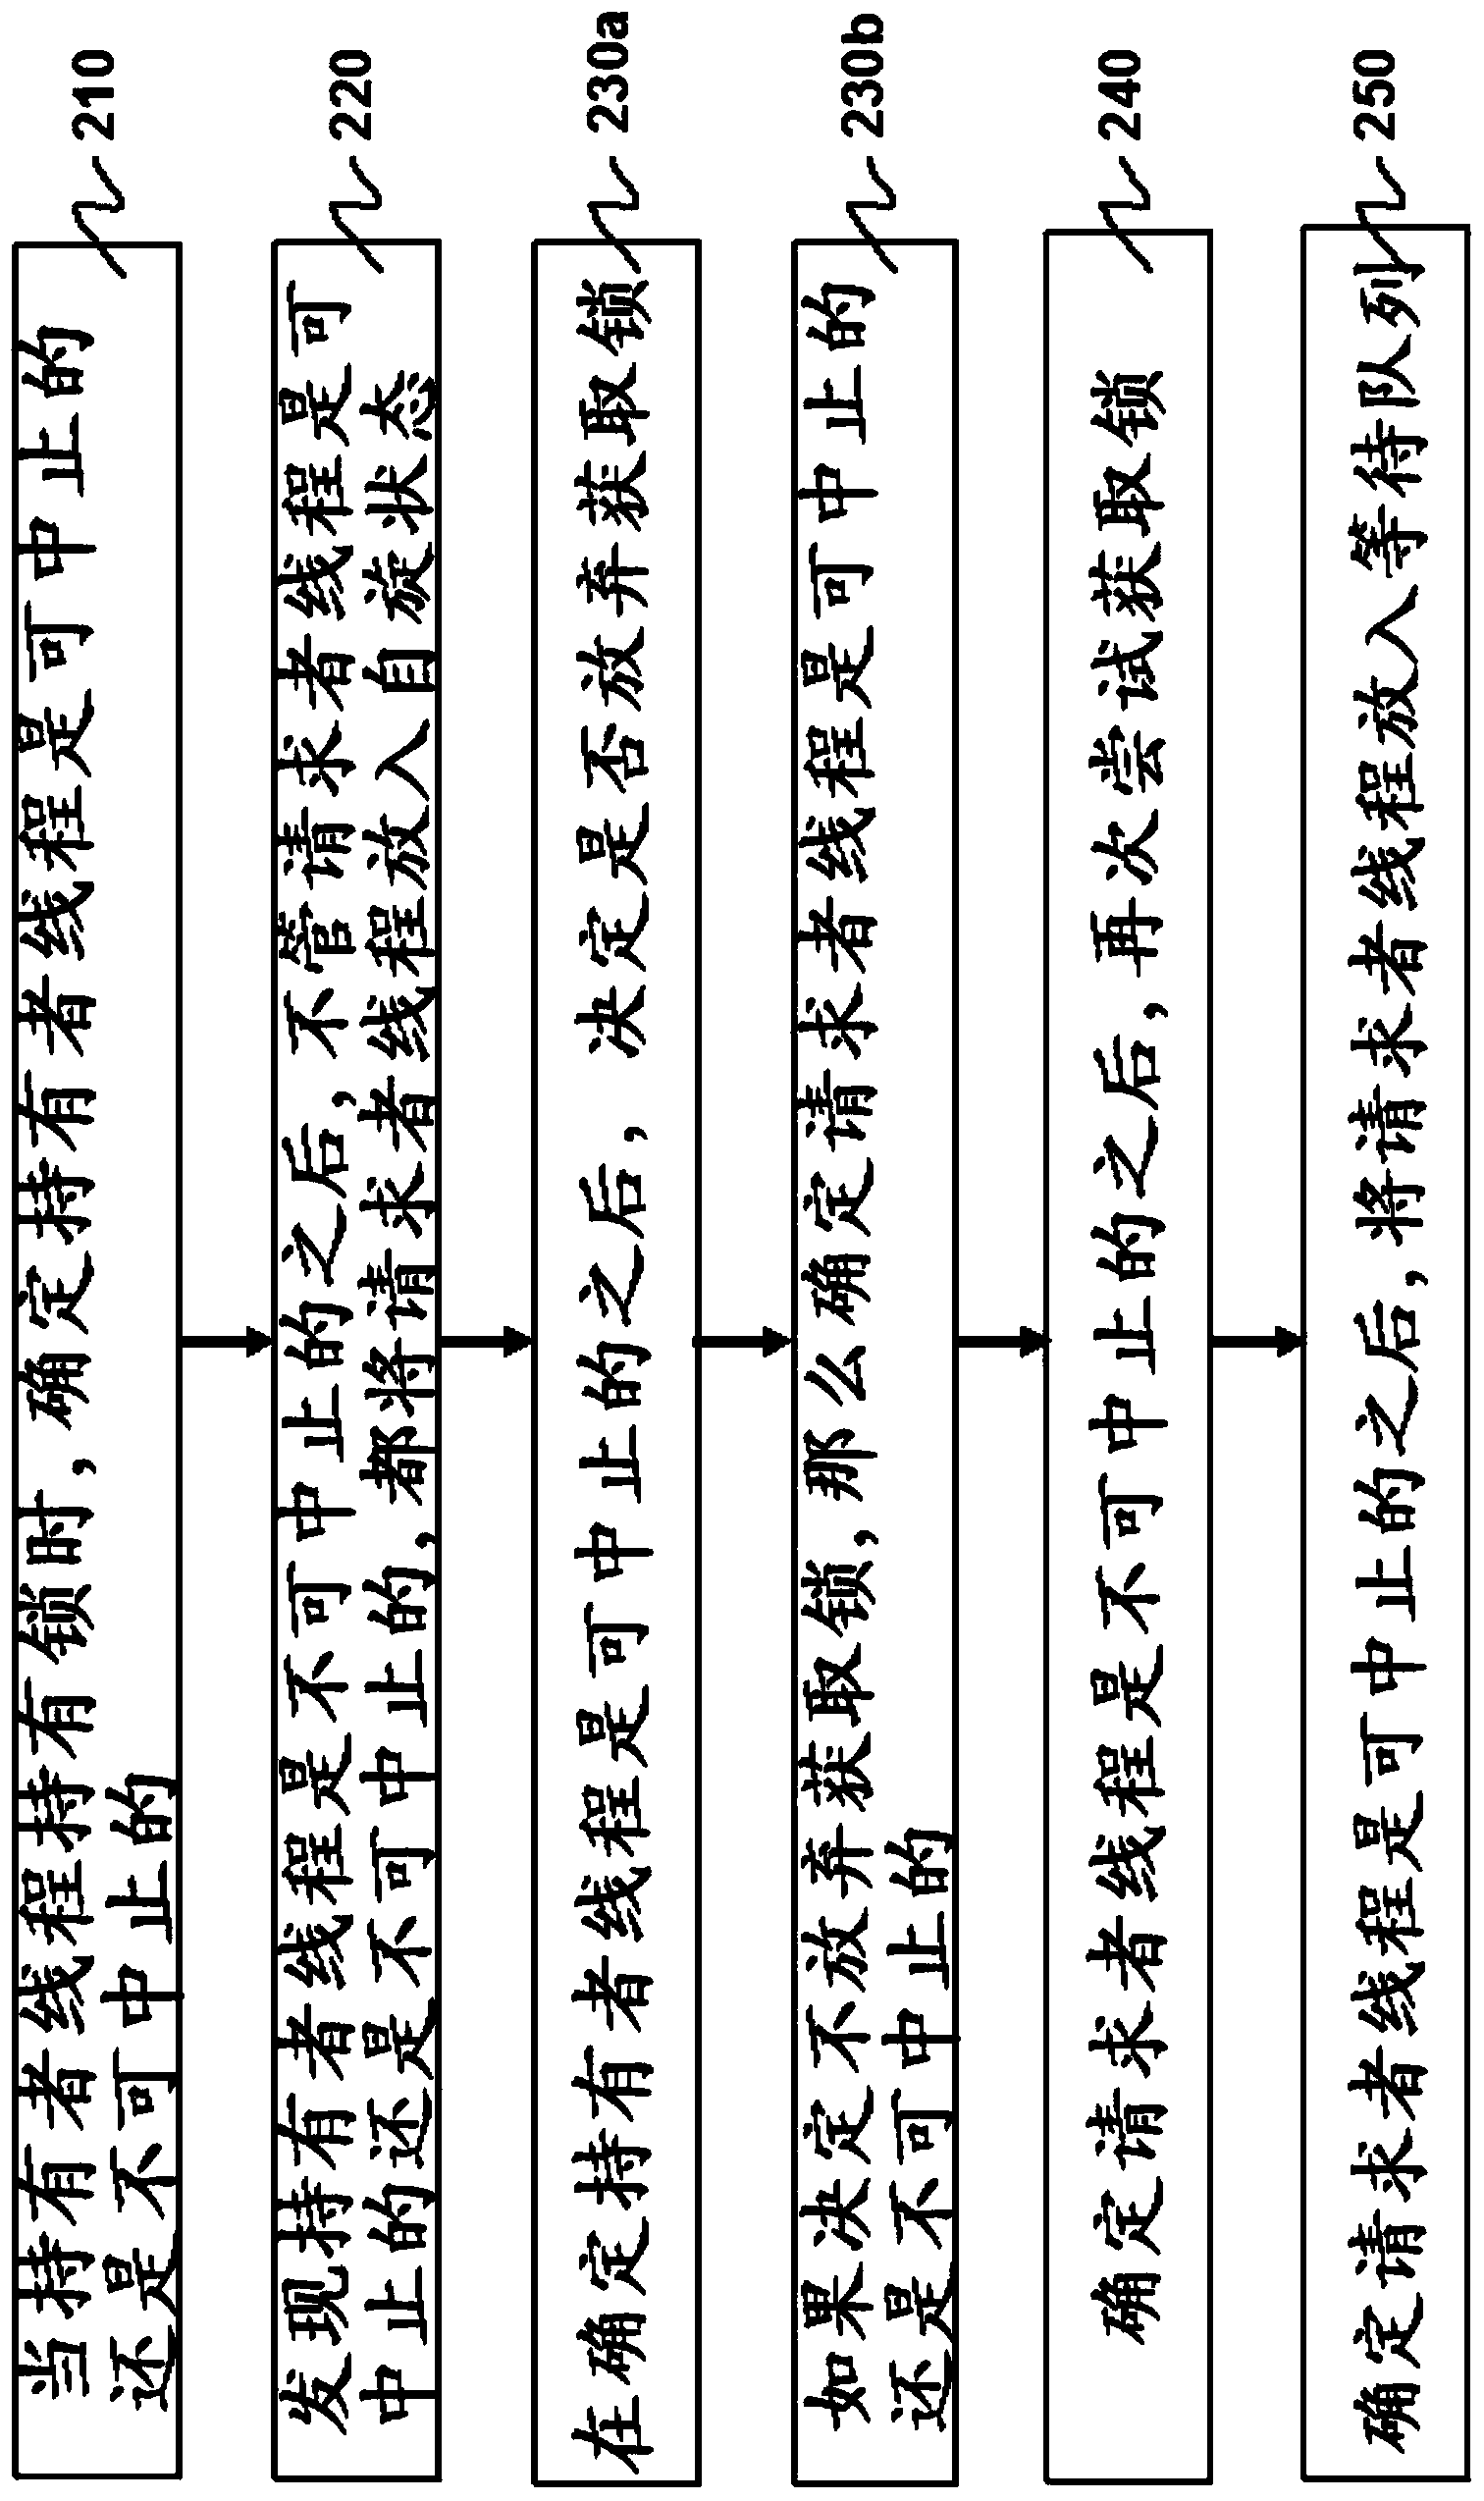 当持有者线程持有锁时，确定持有者线程是可中止的
还是不可中止的
210
发现持有者线程是不可中止的之后，不管请求者线程是可
中止的还是不可中止的，都将请求者线程放入自旋状态
220
在确定持有者线程是可中止的之后，决定是否放弃获取锁
230a
如果决定不放弃获取锁，那么确定请求者线程是可中止的
还是不可中止的
230b
确定请求者线程是不可中止的之后，再次尝试获取锁
240
确定请求者线程是可中止的之后，将请求者线程放入等待队列
250